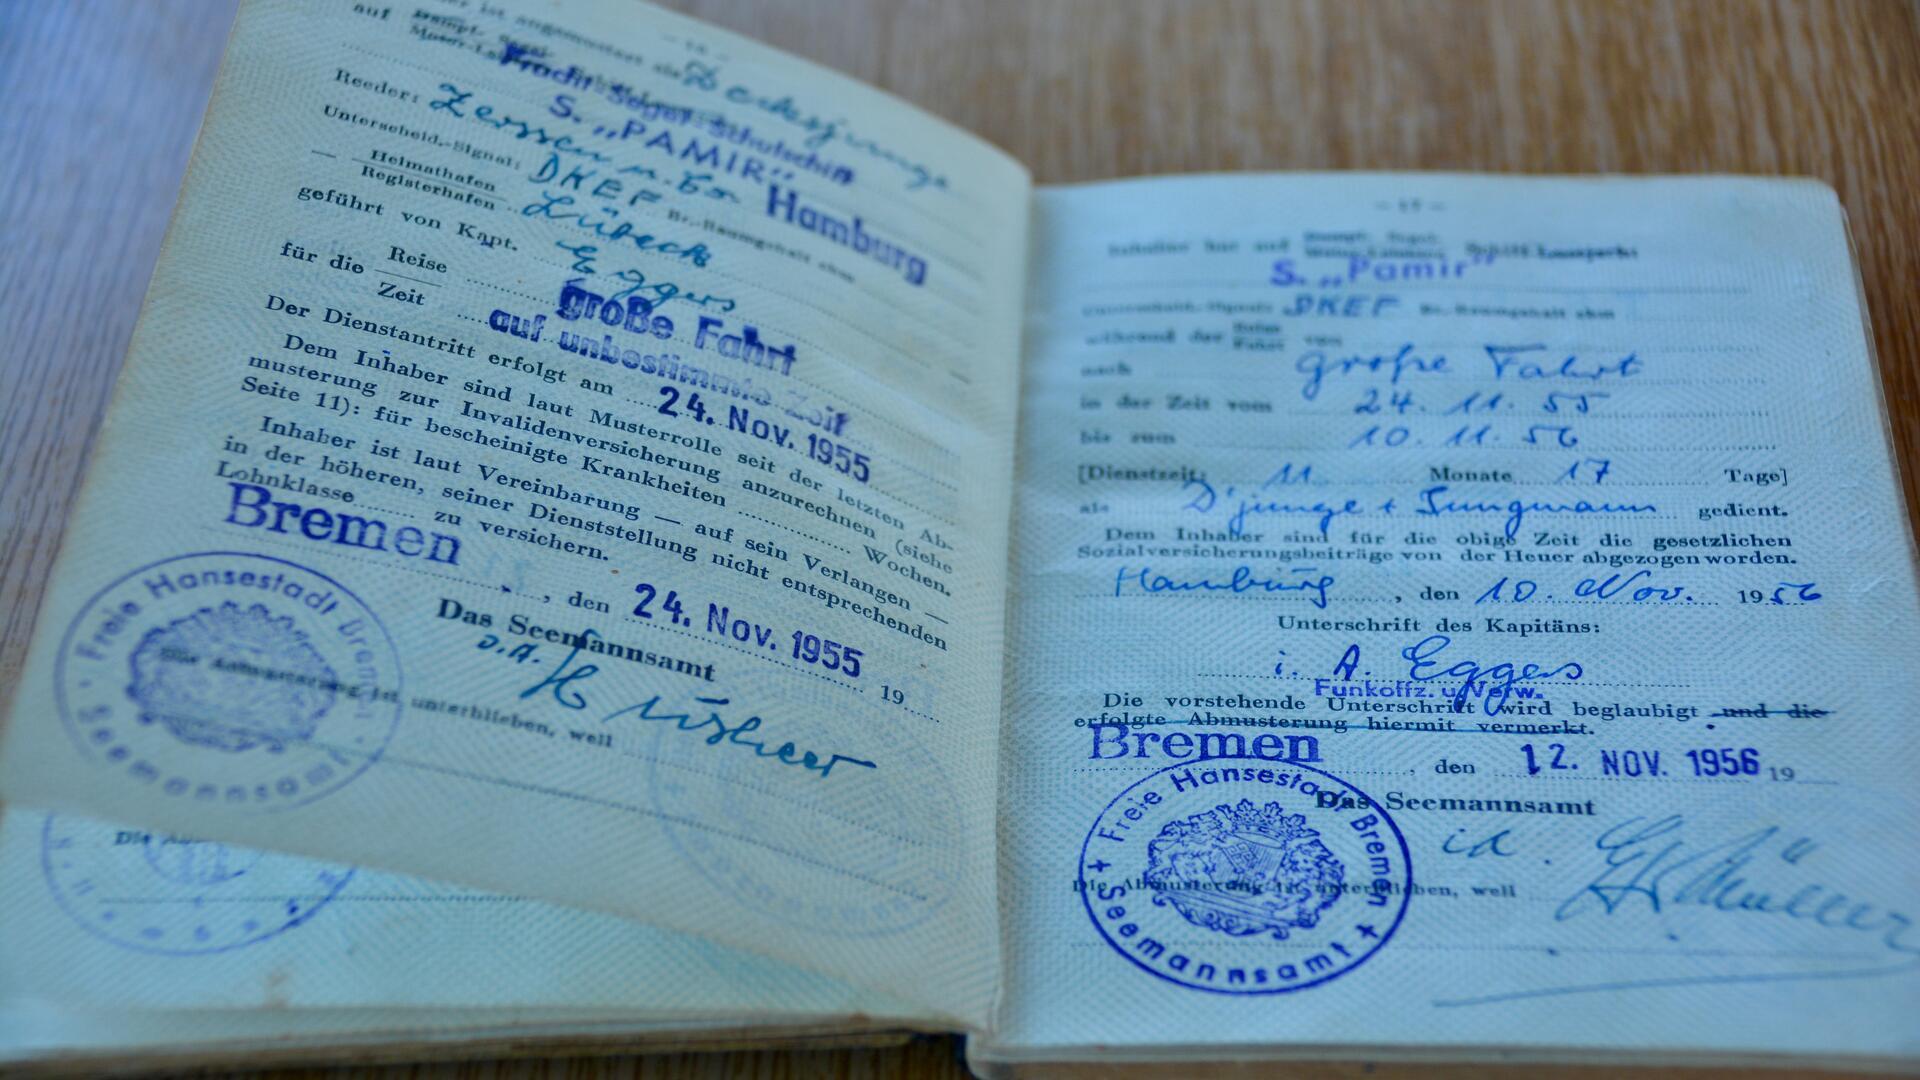 — 16 —
er ist angemustert als Decksjunge
auf Dampf- Segel-
Motor-
Fracht-Segel-Schulschiff
S. „PAMIR"
Reeder: Zerssen u. Co. Hamburg
Unterscheid.-Signal: DKEF Br.-Raumgehalt cbm
— Heimathafen
Registerhafen Lübeck
geführt von Kapt. Eggers
für die Reise
Zeit große Fahrt
auf unbestimmte Zeit
Der Dienstantritt erfolgt am 24. Nov. 1955
Dem Inhaber sind laut Musterrolle seit der letzten Ab-
musterung zur Invalidenversicherung anzurechnen (siehe
Seite 11): für bescheinigte Krankheiten Wochen.
Inhaber ist laut Vereinbarung — auf sein Verlangen —
in der höheren, seiner Dienststellung nicht entsprechenden
Lohnklasse zu versichern.
Bremen, den 24. Nov. 1955 19
Das Seemannsamt
Freie Hansestadt Bremen
Seemannsamt
Die Anmusterung ist unterblieben, weil
— 17 —
Inhaber hat auf Dampf- Segel-
Schiff
S. „Pamir"
Unterscheid.-Signal: DKEF Br.-Raumgehalt cbm
während der Reise
Fahrt von
nach große Fahrt
in der Zeit vom 24. 11. 55
bis zum 10. 11. 56
[Dienstzeit: 11 Monate 17 Tage]
als D'junge + Jungmann gedient.
Dem Inhaber sind für die obige Zeit die gesetzlichen
Sozialversicherungsbeiträge von der Heuer abgezogen worden.
Hamburg, den 10. Nov. 1956
Unterschrift des Kapitäns:
i. A. Eggers
Funkoffz. u. Verw.
Die vorstehende Unterschrift wird beglaubigt und die
erfolgte Abmusterung hiermit vermerkt.
Bremen, den 12. NOV. 1956 19
Das Seemannsamt
Freie Hansestadt Bremen
+ Seemannsamt +
Die Abmusterung ist unterblieben, weil